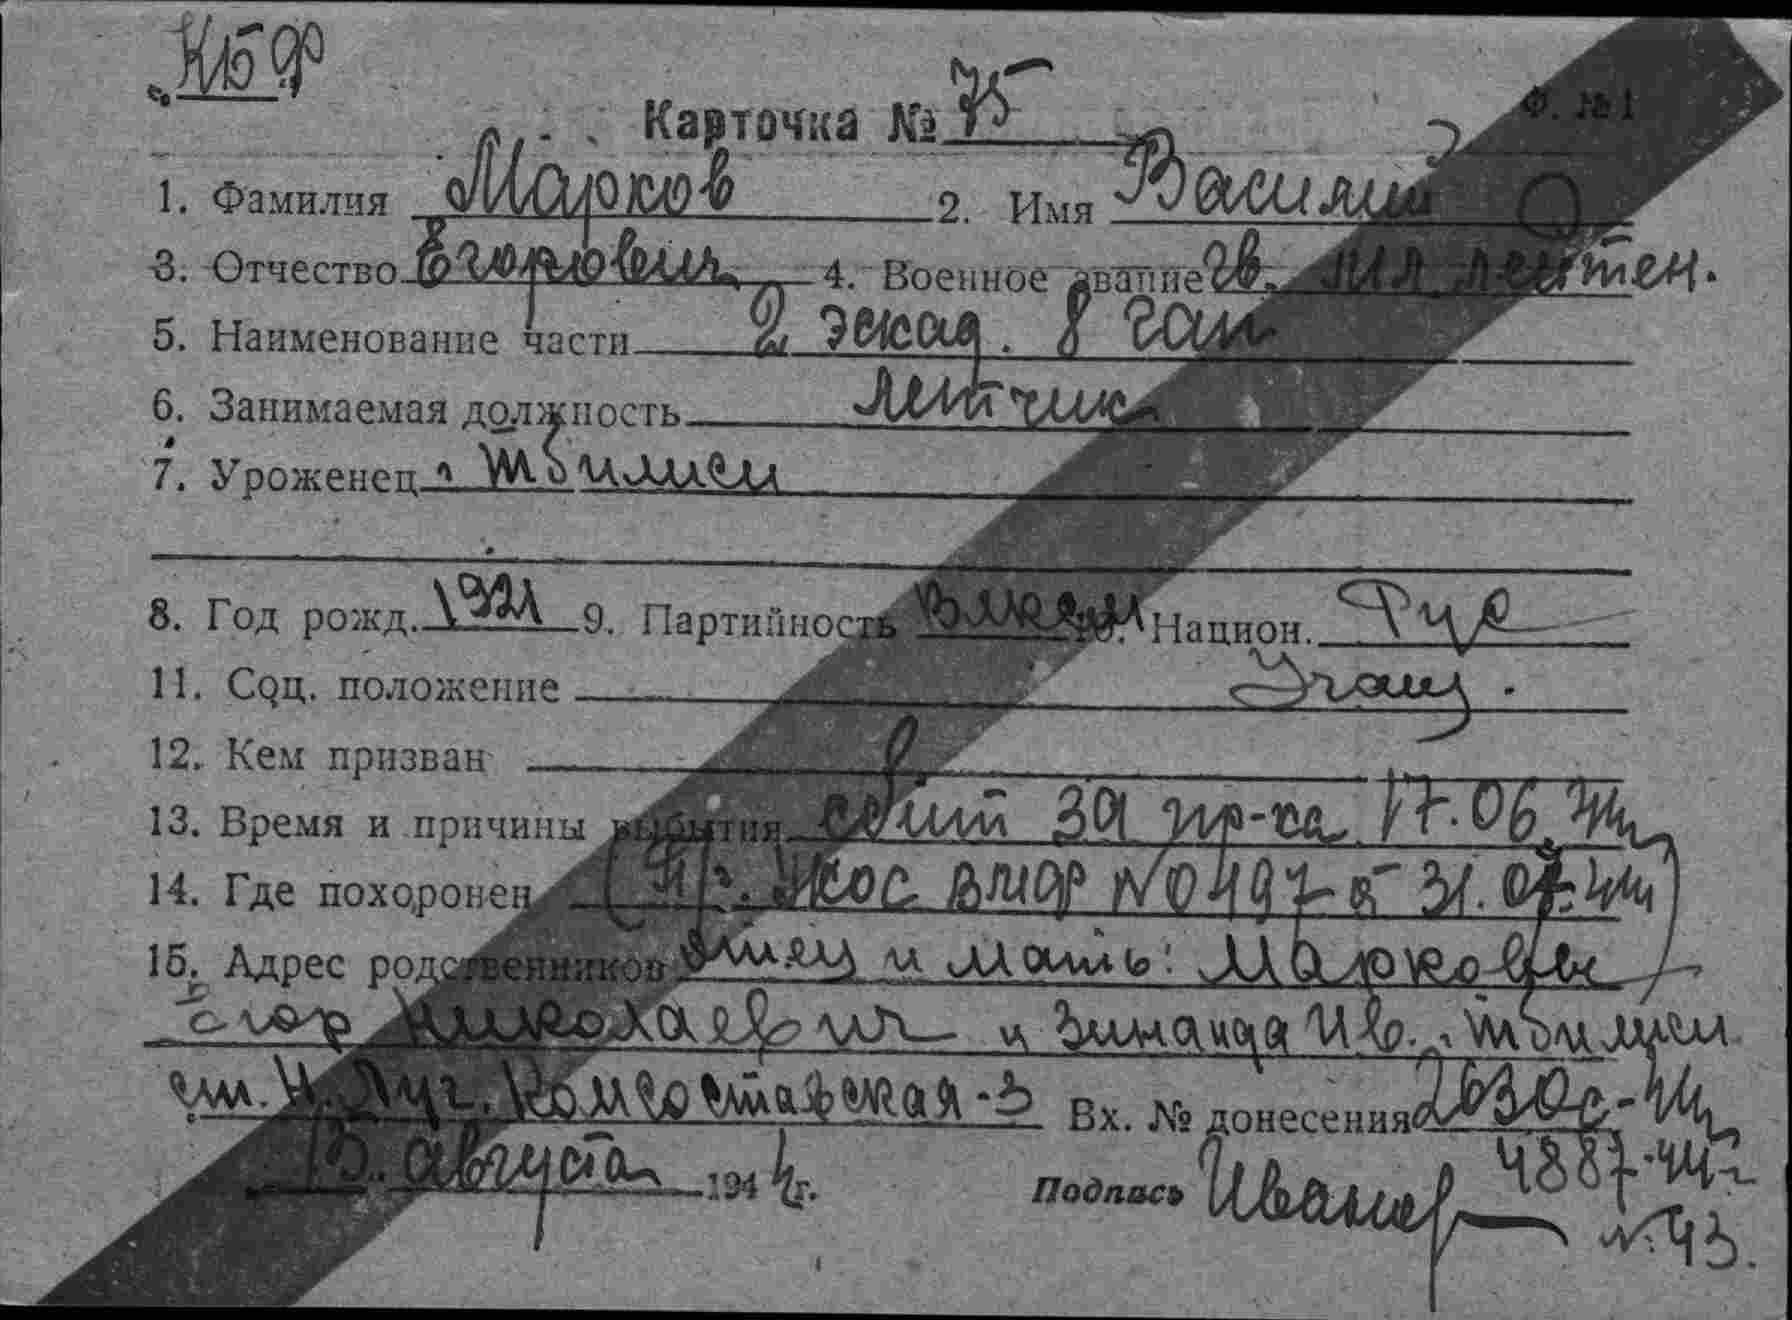 КБФ
Карточка № 75
Ф. № 1
1. Фамилия Марков 2. Имя Василий
3. Отчество Егорович 4. Военное звание гв. мл. лейтен.
5. Наименование части 2 эскад. 8 гап
6. Занимаемая должность летчик
7. Уроженец г. Тбилиси
8. Год рожд. 1921 9. Партийность ВЛКСМ 10. Национ. Рус
11. Соц. положение Учащ.
12. Кем призван
13. Время и причины выбытия сбит за пр-ка 17.06.44г
14. Где похоронен (Пр. УКОС ВМФ № 0497 от 31.07.44)
15. Адрес родственников отец и мать: Марковы
Егор Николаевич и Зинаида Ив. г. Тбилиси
ст. Н. Луг. Комсоставская-3 Вх. № донесения 2630с-44г
13. августа 1944г. Подпись 4887-44г
№ 43.